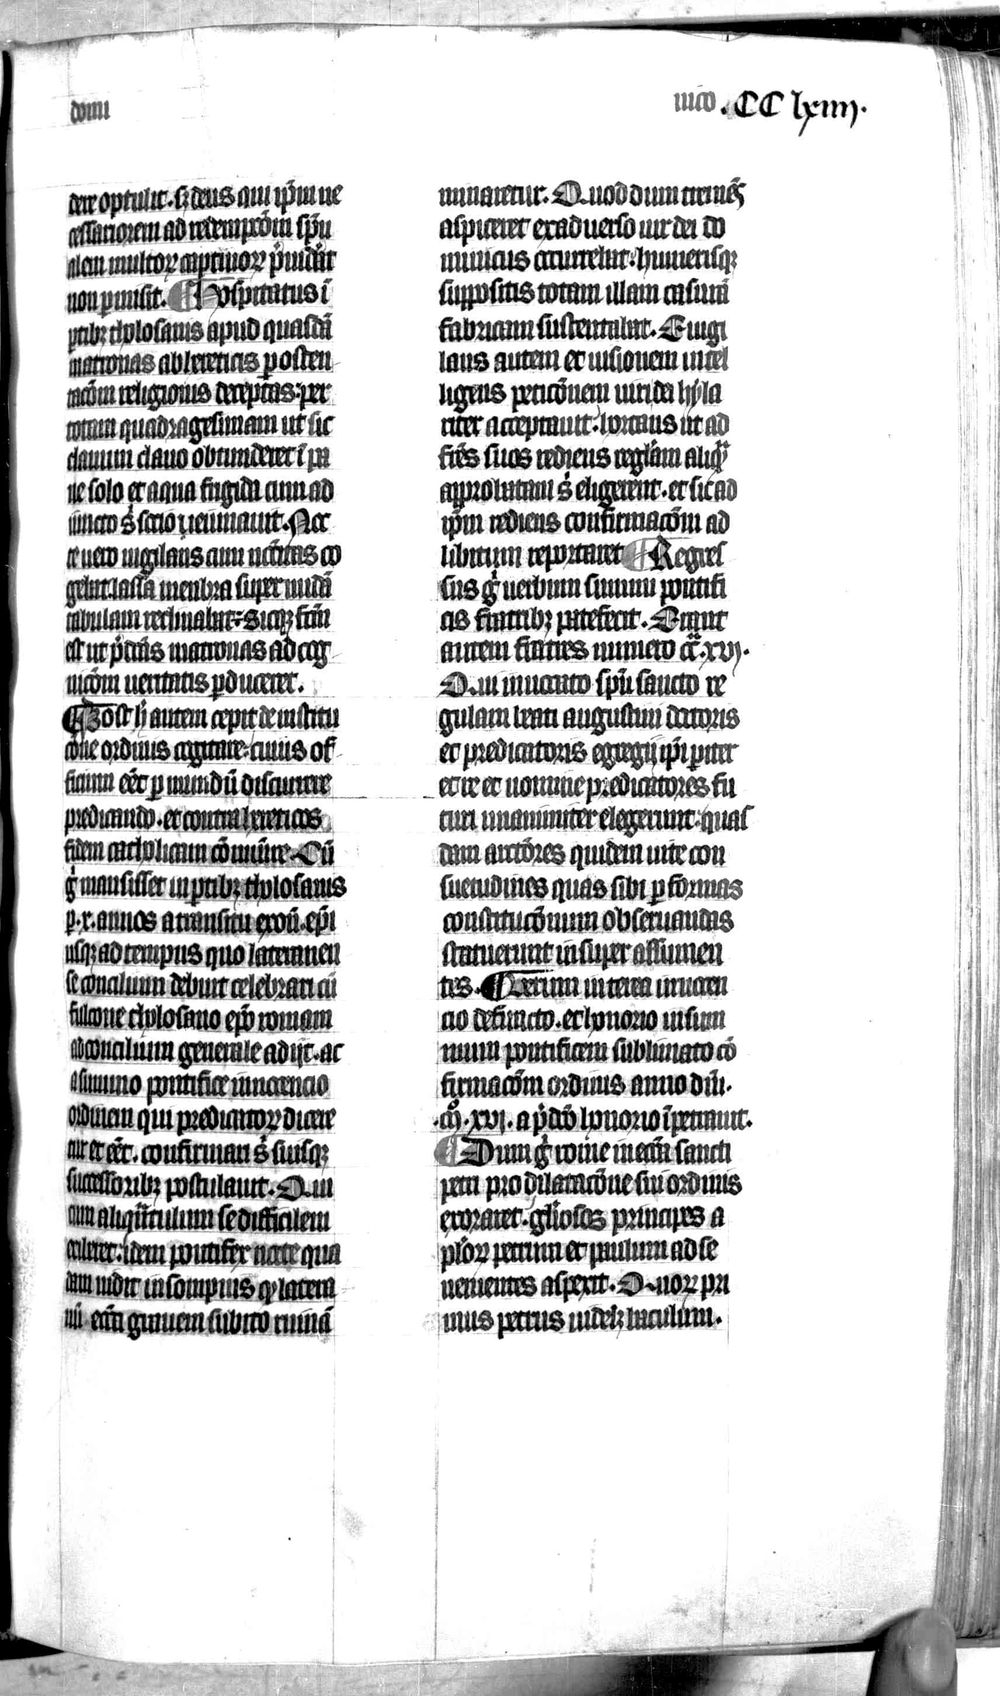 domi
nico .CC lxiiij.
dere optulit. sʒ deus qui ip̄m ne
cessariorem ad redempc̄om sp̄u
alem multoꝝ captiuoꝝ p̄uidat
non ꝑmisit. Hospitatus ī
ꝑtibꝫ tholosanis apud quasdā
matronas ab hereticis ꝑ osten
tac̄om religionis deceptas: per
totam quadragesimam ut sic
clauum clauo obtunderet ī pa
ne solo et aqua frigida cum ad
iuncto s̄ socio ieiunauit. Noc
te uero uigilans cum nc̄itas co
gebat. lassa menbra super nudā
tabulam reclinabat. Sicqꝫ fc̄m
est ut p̄dc̄as matronas ad cog
nic̄om ueritatis ꝑduceret.
Post h̄ autem cepit de institu
c̄one ordinis cogitare. cuius of
ficium eēt ꝑ mundū discurrere
predicando. et contra hereticos
fidem catholicam cōmuīre. Cū
g̊ mansisset in ꝑtibꝫ tholosanis
ꝑ .x. annos a transitu exoñ. ep̄i
usqꝫ ad tempus quo lateranen
se concilium debuit celebrari cū
fulcone tholosano ep̄o romam
ad concilium generale adijt. ac
a summo pontifice innocencio
ordinem qui predicatoꝝ dicere
tur et eēt. confirmari s̄ suisqꝫ
successoribꝫ postulauit. Qui
cum aliqu̅tulum se difficilem
exhiberet. idem pontifex nocte qua
dam uidit in sompnis qͥ latera
nī. ecc̄a grauem subito ruinā
minaretur. Quod dum tremēs
aspiceret ex aduerso uir dei do
minicus occurrebat. humerisqꝫ
suppositis totam illam casurā
fabricam sustentabat. Euigi
lans autem et uisionem intel
ligens petic̄onem uiri dei hyla
riter acceptauit. hortans ut ad
fr̄es suos rediens regulam aliqͣ
approbatam s̄ eligerent. et sic ad
ip̄m rediens confirmac̄om ad
libitum reportaret Regres
sus g̊ uerbum summi pontifi
cis fratribꝫ patefecit. Erant
autem fratres numero c̅r̅.xvj.
Qui inuocato sp̄u sancto re
gulam beati augustini doctoris
et predicatoris egregij ip̄i ꝑiter
et re et nomine predicatores fu
turi unanimiter elegerunt. quas
dam arctiores quidem uite con
suetudines quas sibi ꝑ formas
constituc̄onum obseruandas
statuerunt insuper assumen
tes. Uerum interea innocen
cio defuncto. et honorio in sum
mum pontificem sublimato cō
firmac̄om ordinis anno dn̄i.
.m̊.xvj. a p̄dc̄o honorio īpetrauit.
Dum g̊ rome in ecc̄ia sancti
petri pro dilatac̄one sui ordinis
exoraret. gl̄iosos principes a
pl̄oꝝ petrum et paulum ad se
uenientes aspexit. Quoꝝ pri
mus petrus uidelꝫ baculum.